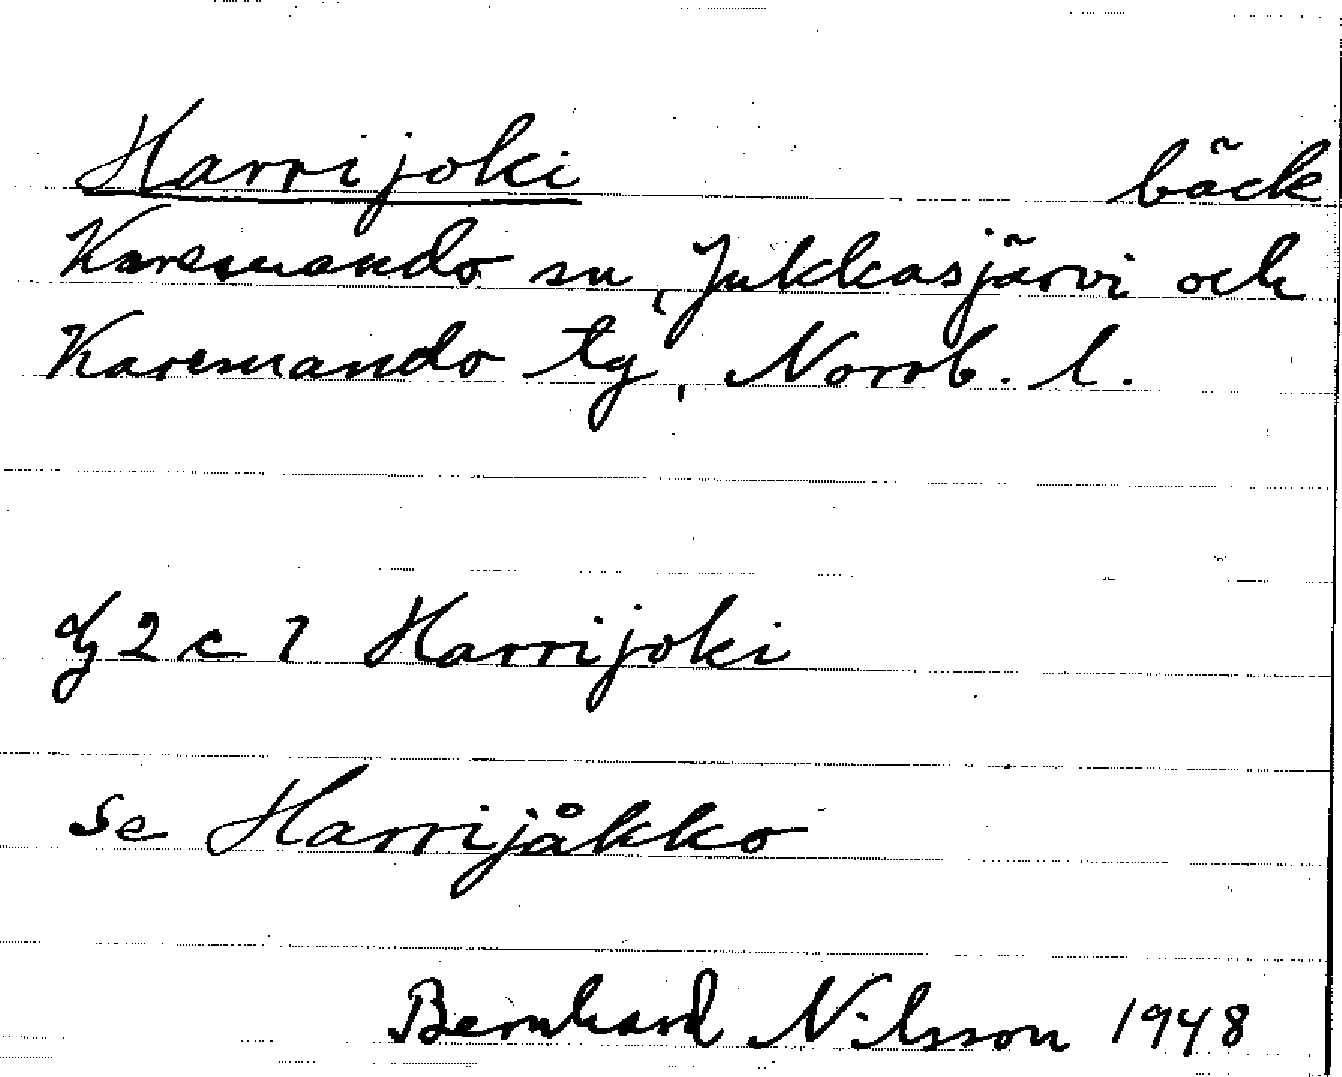 Harrijoki bäck
Karesuando sn, Jukkasjärvi och
Karesuando tg, Norrb. l.
2 c 7 Harrijoki
se Harrijåkko
Bernhard Nilsson 1948